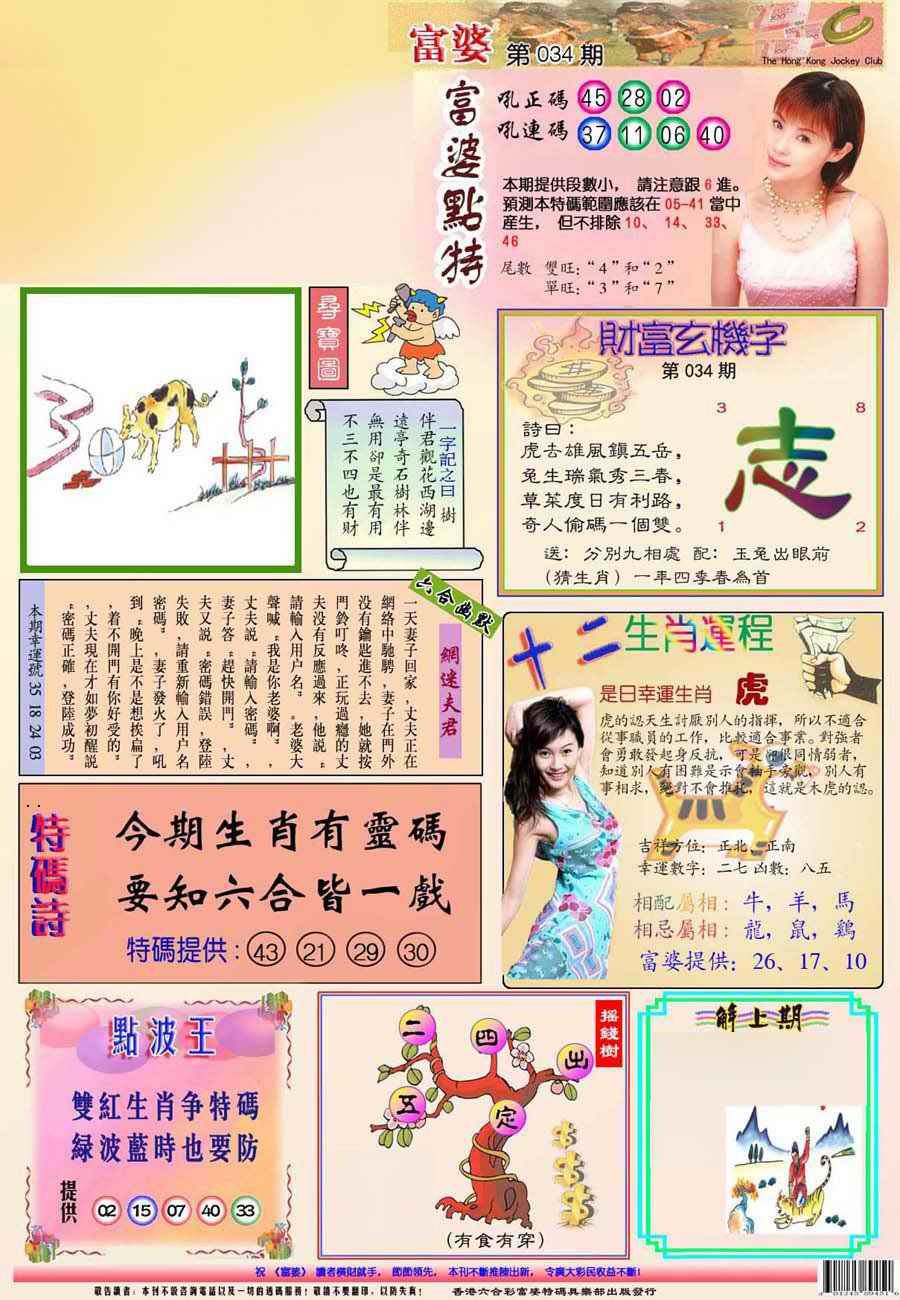 富婆 第034期
The Hong Kong Jockey Club
富婆點特
吼正碼 45 28 02
吼連碼 37 11 06 40
本期提供段數小， 請注意跟6進。
預測本特碼範圍應該在05-41當中
産生， 但不排除10、 14、 33、
46
尾數 雙旺:“4”和“2”
單旺:“3”和“7”
尋寶圖
一字記之曰 樹
伴君觀花西湖邊
遠亭奇石樹林伴
無用卻是最有用
不三不四也有財
財富玄機字
第034期
3 8
志
1 2
詩曰:
虎去雄風鎮五岳，
兔生瑞氣秀三春，
草菜度日有利路，
奇人偷碼一個雙。
送: 分別九相處 配: 玉兔出眼前
(猜生肖) 一年四季春為首
六合幽默
網迷夫君
一天妻子回家，丈夫正在
網絡中馳騁，妻子在門外
没有鑰匙進不去，她就按
門鈴叮咚，正玩過癮的丈
夫没有反應過來，他説“
請輸入用户名”。老婆大
聲喊“我是你老婆啊”，
丈夫説“請輸入密碼”，
妻子答“趕快開門”，丈
夫又説“密碼錯誤，登陸
失敗，請重新輸入用户名
密碼”，妻子發火了，吼
到“晚上是不是想挨扁了
，着不開門有你好受的”
，丈夫現在才如夢初醒説
“密碼正確，登陸成功”
本期幸運號 35 18 24 03
十二生肖運程
是日幸運生肖 虎
虎的認天生討厭別人的指揮，所以不適合
從事職員的工作，比較適合事業。對強者
會勇敢發起身反抗，可是却很同情弱者，
知道別人有困難是示會袖手旁觀，別人有
事相求，絕對不會推托，這就是木虎的認。
吉祥方位: 正北、正南
幸運數字: 二七 凶數: 八五
相配屬相: 牛，羊，馬
相忌屬相: 龍，鼠，鷄
富婆提供: 26、17、10
特碼詩
今期生肖有靈碼
要知六合皆一戲
特碼提供: 43 21 29 30
點波王
雙紅生肖争特碼
緑波藍時也要防
提供 02 15 07 40 33
摇錢樹
二 四 出
五 定
(有食有穿)
解上期
祝 《富婆》 讀者横財就手， 節節領先， 本刊不斷推陳出新， 令廣大彩民收益不斷!
敬告讀者: 本刊不設咨詢電話以及一切的透碼服務! 敬請不要翻印，以防失真! 香港六合彩富婆特碼俱樂部出版發行